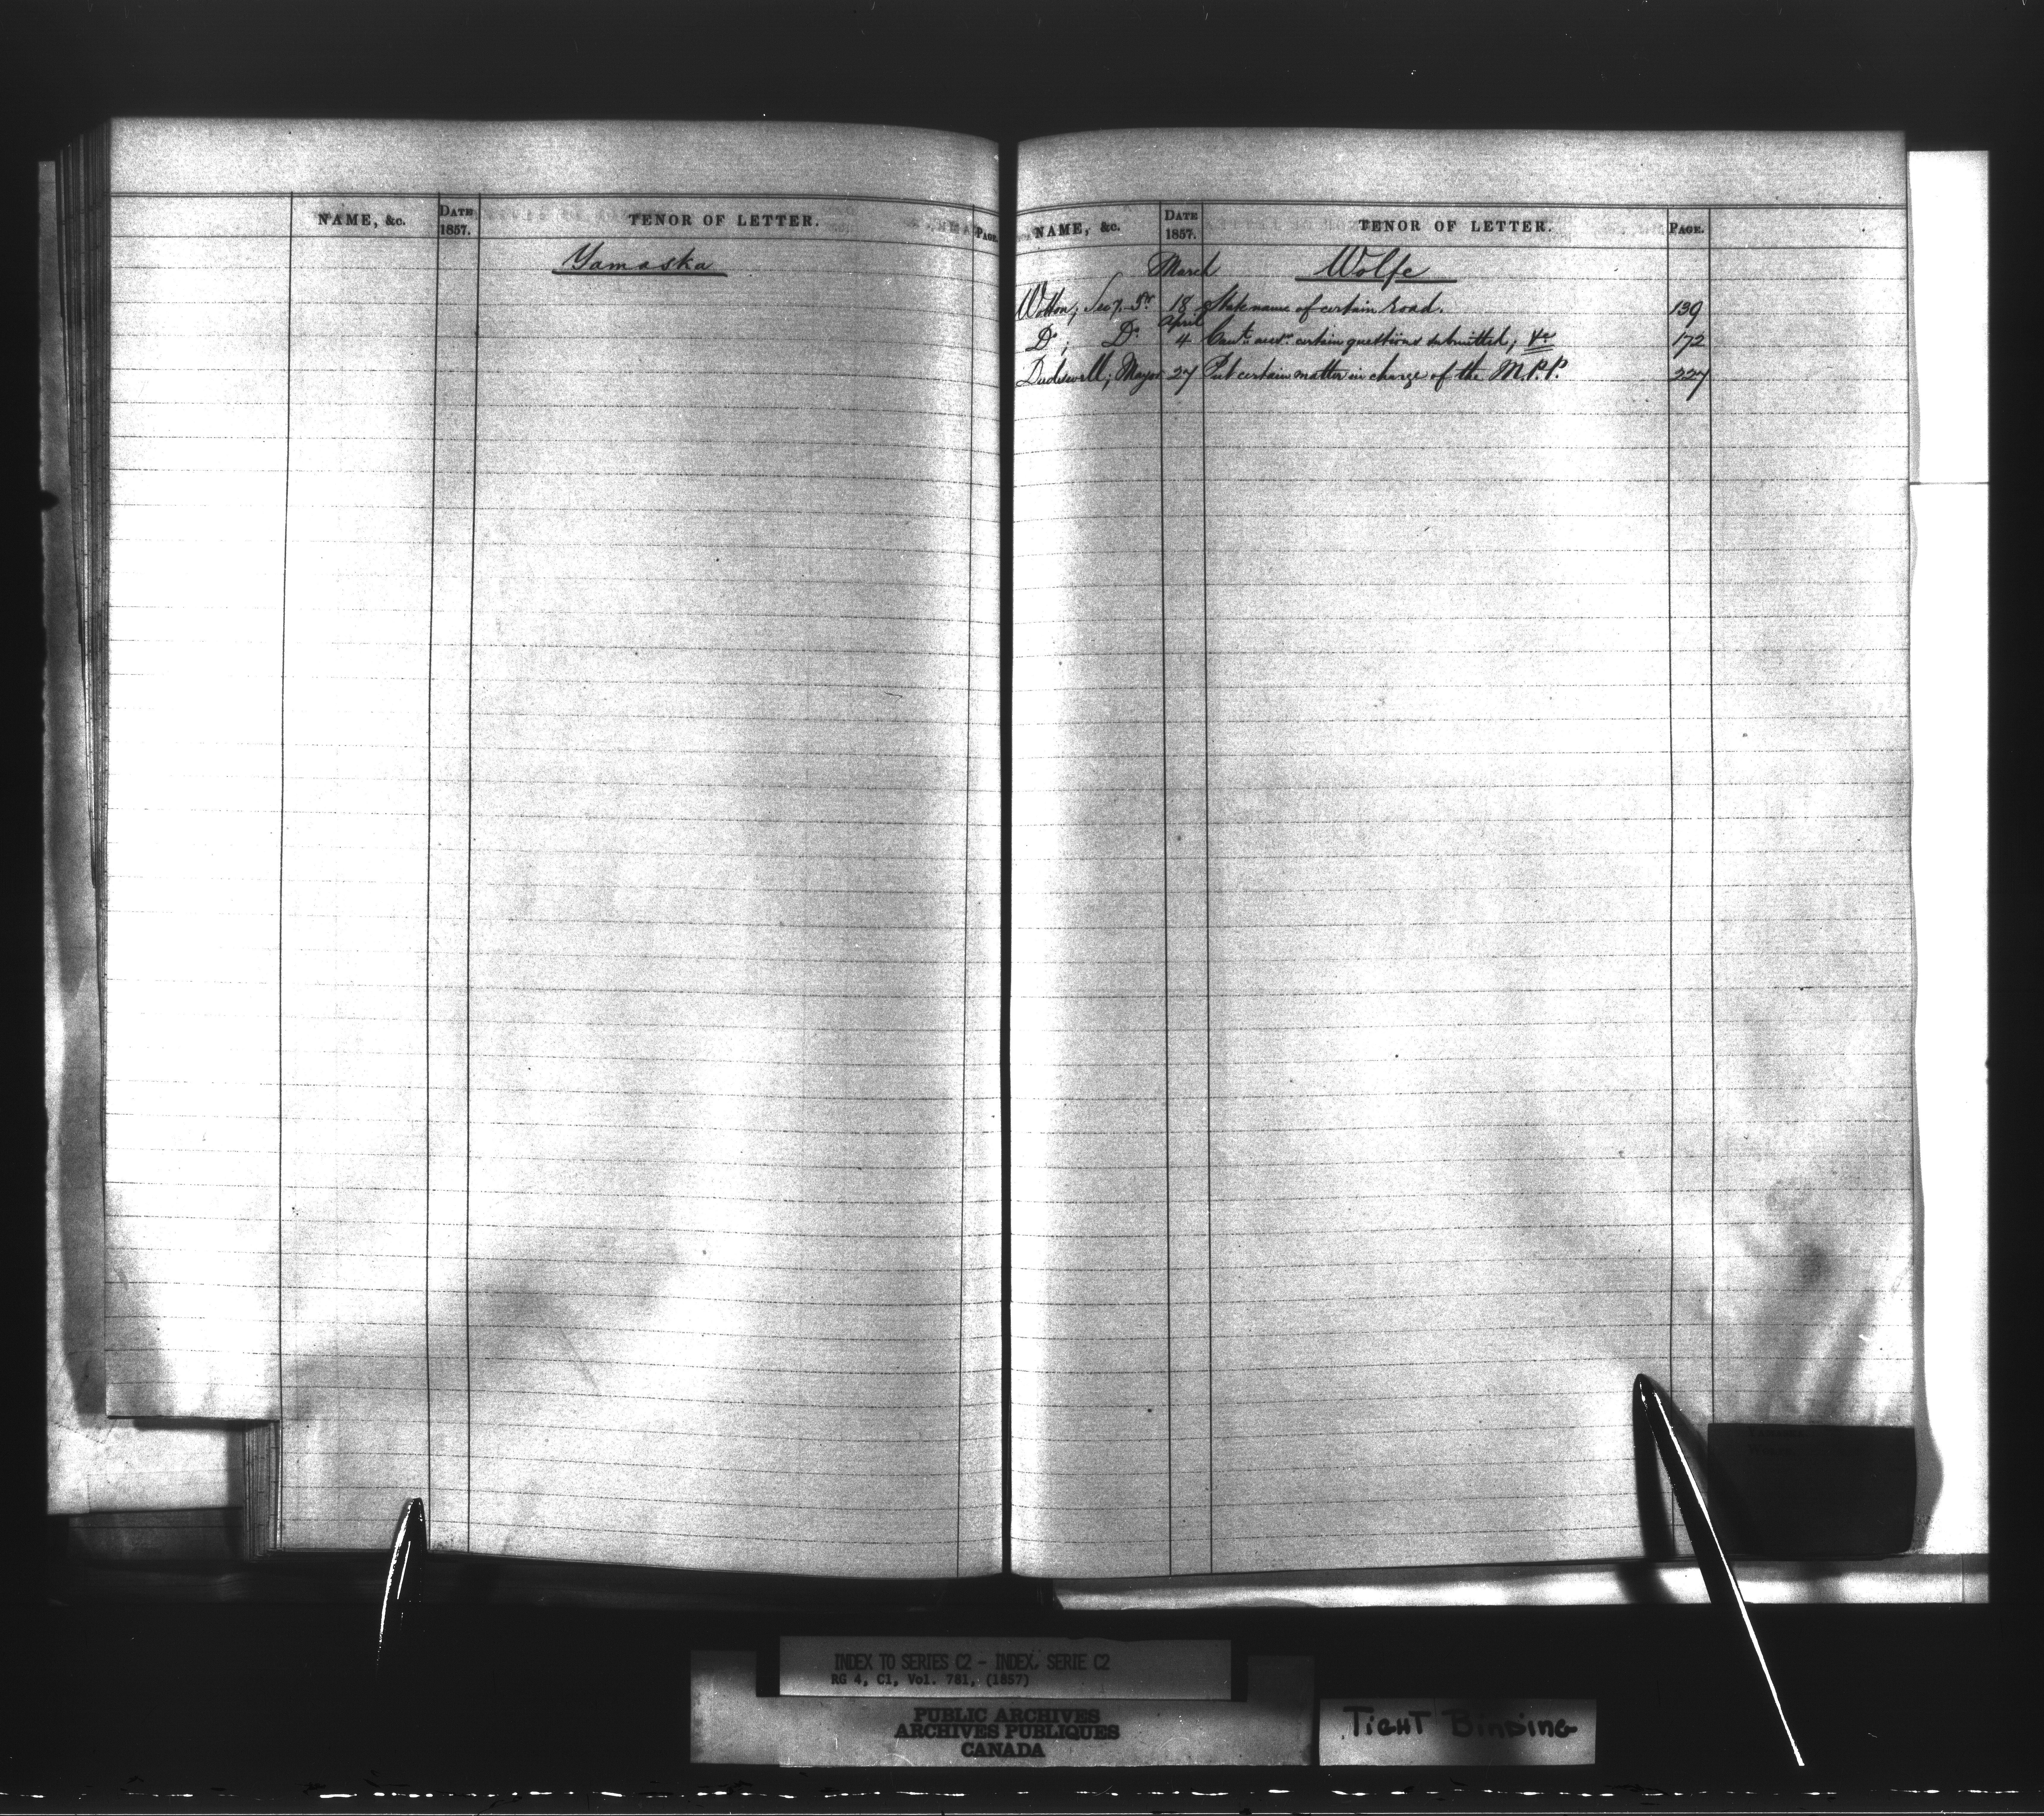 NAME, &c. DATE 1857. TENOR OF LETTER. PAGE.
Yamaska
NAME, &c. DATE 1857. TENOR OF LETTER. PAGE.
March Wolfe
Wotton; Sec.y. Tr 18 State name of certain road. 139
April
Do; Do 4 Can't answr certain questions submitted; &c 172
Dudswell, Mayor 27 Put certain matter in charge of the M.P.P. 227
INDEX TO SERIES C2 - INDEX, SERIE C2
RG 4, C1, Vol. 781, (1857)
PUBLIC ARCHIVES
ARCHIVES PUBLIQUES
CANADA
TIGHT BINDING